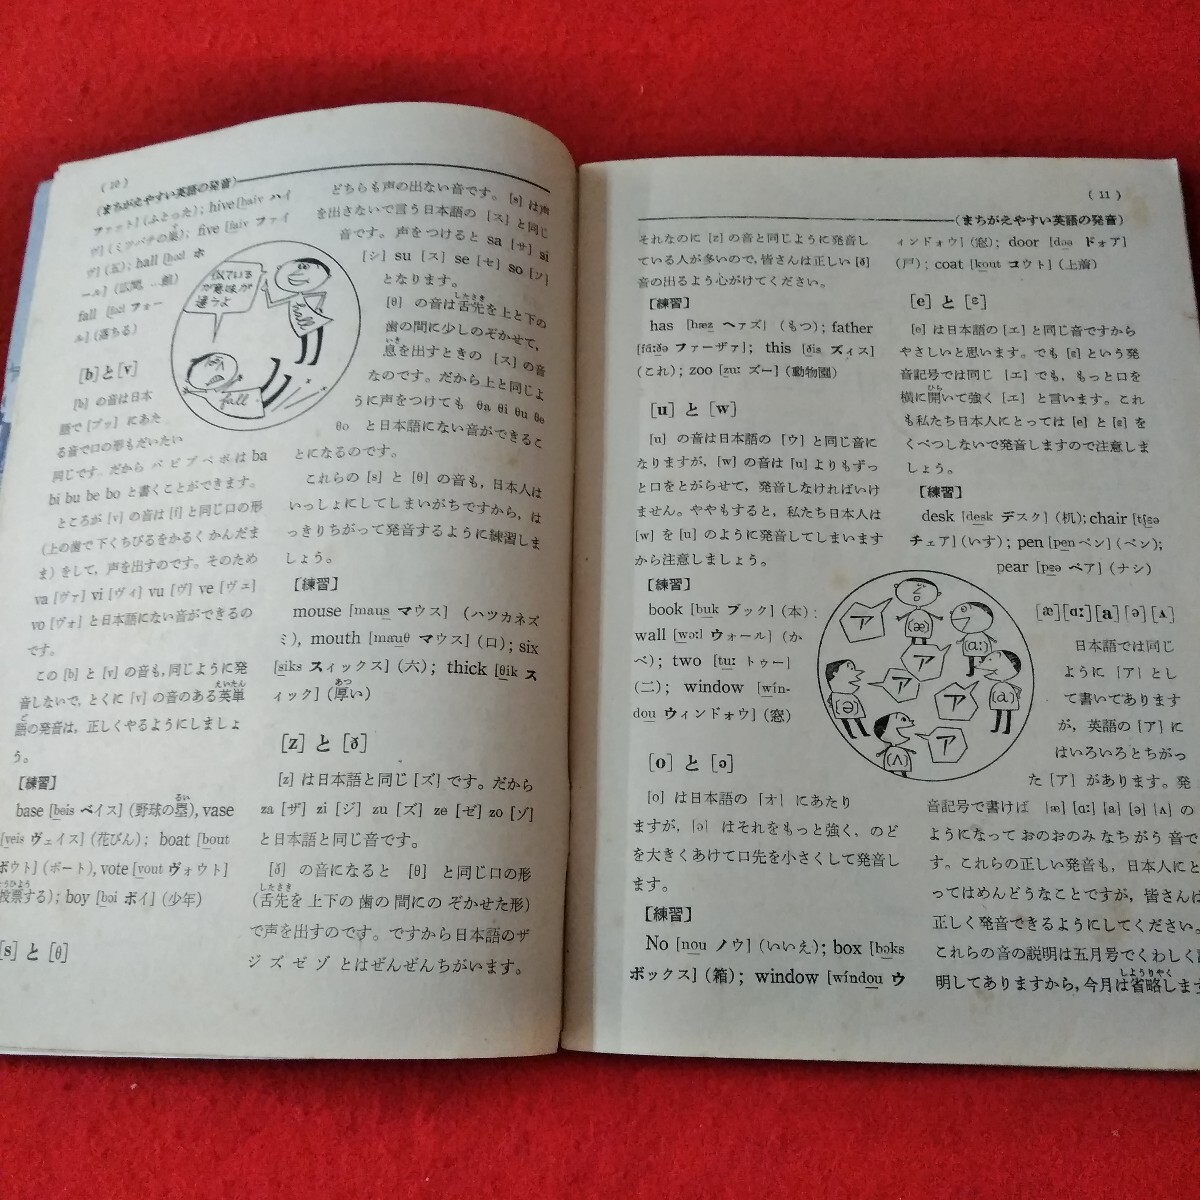 ( 10 )
(まちがえやすい英語の発音)
ファット] (ふとった); hive [haiv ハイ
ヴ] (ミツバチの巣); five [faiv ファイ
ヴ] (五); hall [hɔːl ホ
ール] (広間
fall [fɔːl フォー
ル] (落ちる)
似ている
が意味が
違うよ
hall
fall
[b]と[v]
[b] の音は日本
語で [ブッ] にあた
る音で口の形もだいたい
同じです。だから バ ビ ブ ベ ボ は ba
bi bu be bo と書くことができます。
ところが [v] の音は [f] と同じ口の形
(上の歯で下くちびるをかるく かんだま
ま) をして, 声を出すのです。そのため
va [ヴァ] vi [ヴィ] vu [ヴ] ve [ヴェ]
vo [ヴォ] と日本語にない音ができるの
です。
この [b] と [v] の音も, 同じように発
音しないで, とくに [v] の音のある英単
語の発音は, 正しくやるようにしましょ
う。
[練習]
base [beis ベイス] (野球の塁), vase
[veis ヴェイス] (花びん); boat [bout
ボウト] (ボート), vote [vout ヴォウト]
投票する); boy [bɔi ボイ] (少年)
[s] と [θ]
どちらも声の出ない音です。[s] は声
を出さないで言う日本語の [ス] と同じ
音です。声をつけると sa [サ] si
[シ] su [ス] se [セ] so [ソ]
となります。
[θ] の音は舌先を上と下の
歯の間に少しのぞかせて,
息を出すときの [ス] の音
なのです。だから上と同じよ
うに声をつけても θa θi θu θe
θo と日本語にない音ができるこ
とになるのです。
これらの [s] と [θ] の音も, 日本人は
いっしょにしてしまいがちですから, は
っきりちがって発音するように練習しま
しょう。
[練習]
mouse [maus マウス] (ハツカネズ
ミ), mouth [mauθ マウス] (口); six
[siks スィックス] (六); thick [θik ス
ィック] (厚い)
[z] と [ð]
[z] は日本語と同じ [ズ] です。だから
za [ザ] zi [ジ] zu [ズ] ze [ゼ] zo [ゾ]
と日本語と同じ音です。
[ð] の音になると [θ] と同じ口の形
(舌先を 上下の 歯の 間にの ぞかせた形)
で声を出すのです。ですから日本語のザ
ジ ズ ゼ ゾ とはぜんぜんちがいます。
( 11 )
(まちがえやすい英語の発音)
それなのに [z] の音と同じように発音し
ている人が多いので, 皆さんは正しい [ð]
音の出るよう心がけてください。
[練習]
has [hæz ヘァズ] (もつ); father
[fɑːðə ファーザァ]; this [ðis ズィス]
(これ); zoo [zuː ズー] (動物園)
[u] と [w]
[u] の音は日本語の [ウ] と同じ音に
なりますが, [w] の音は [u] よりもずっ
と口をとがらせて, 発音しなければいけ
ません。ややもすると, 私たち日本人は
[w] を [u] のように発音してしまいます
から注意しましょう。
[練習]
book [buk ブック] (本);
wall [wɔːl ウォール] (か
べ); two [tuː トゥー]
(二); window [wín-
dou ウィンドォウ] (窓)
[o] と [ɔ]
[o] は日本語の [オ] にあたり
ますが, [ɔ] はそれをもっと強く, のど
を大きくあけて口先を小さくして発音し
ます。
[練習]
No [nou ノウ] (いいえ); box [bɔks
ボックス] (箱); window [wíndou ウ
ィンドォウ] (窓); door [dɔə ドォア]
(戸); coat [kout コウト] (上着)
[e] と [ɛ]
[e] は日本語の [エ] と同じ音ですから
やさしいと思います。でも [ɛ] という発
音記号では同じ [エ] でも, もっと口を
横に開いて強く [エ] と言います。これ
も私たち日本人にとっては [e] と [ɛ] を
くべつしないで発音しますので注意しま
しょう。
[練習]
desk [desk デスク] (机); chair [tʃɛə
チェア] (いす); pen [pen ペン] (ペン);
pear [pɛə ペア] (ナシ)
ア
ア
ア
ア
ア
(æ)
(ɑː)
(a)
(ə)
(ʌ)
[æ] [ɑː] [a] [ə] [ʌ]
日本語では同じ
ように [ア] とし
て書いてあります
が, 英語の [ア] に
はいろいろとちがっ
た [ア] があります。発
音記号で書けば [æ] [ɑː] [a] [ə] [ʌ] の
ようになって おのおのみ なちがう 音で
す。これらの正しい発音も, 日本人にと
ってはめんどうなことですが, 皆さんは
正しく発音できるようにしてください。
これらの音の説明は五月号でくわしく説
明してありますから, 今月は省略します